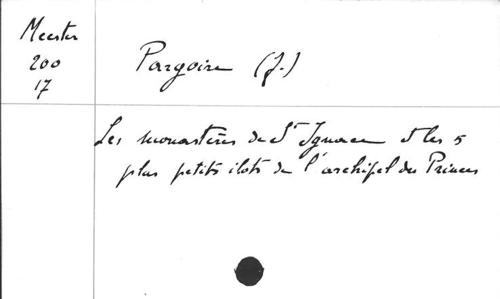 Meester
200
17
Pargoire (J.)
Les monastères de St Ignace et les 5
plus petits ilots de l'archipel des Princes